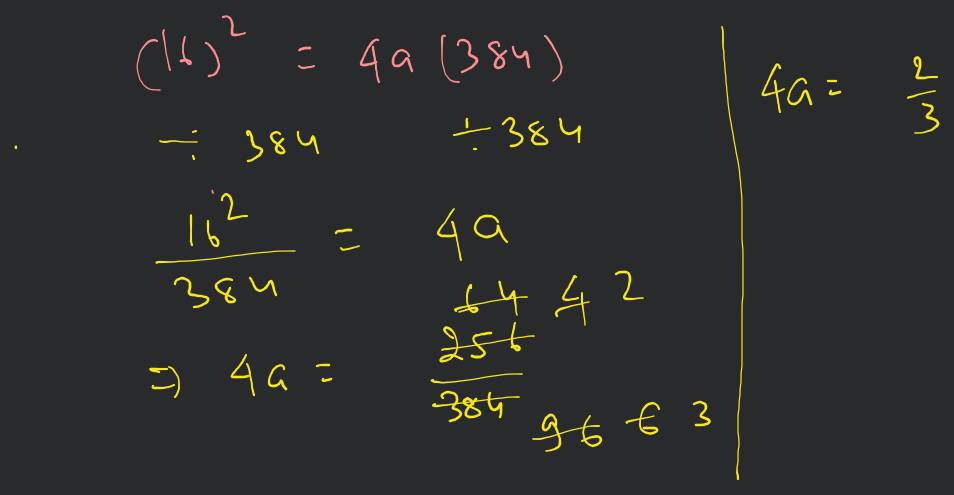 (16)² = 4a (384)
÷ 384 ÷ 384
16²/384 = 4a
⇒ 4a = 256/384
64 4 2
96 6 3
4a = 2/3